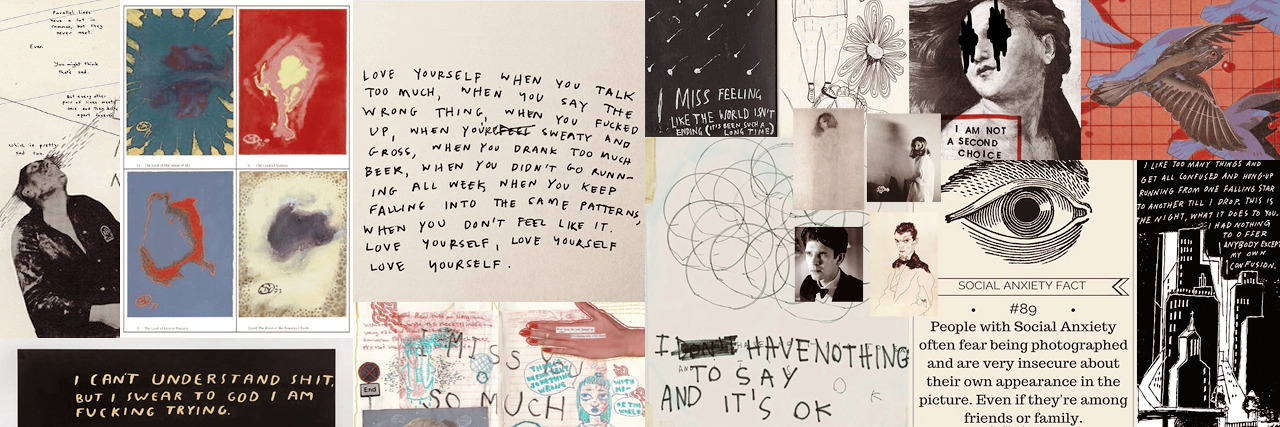 Parallel lines
have a lot in
common, but they
never meet.
Ever.
You might think
that's sad.
But every other
pair of lines meets
once and then drifts
apart forever.
Which is pretty
sad too.
LOVE YOURSELF WHEN YOU TALK
TOO MUCH, WHEN YOU SAY THE
WRONG THING, WHEN YOU FUCKED
UP, WHEN YOU'RE SWEATY AND
GROSS, WHEN YOU DRANK TOO MUCH
BEER, WHEN YOU DIDN'T GO RUNN-
ING ALL WEEK, WHEN YOU KEEP
FALLING INTO THE SAME PATTERNS,
WHEN YOU DON'T FEEL LIKE IT.
LOVE YOURSELF, LOVE YOURSELF
LOVE YOURSELF.
I CAN'T UNDERSTAND SHIT,
BUT I SWEAR TO GOD I AM
FUCKING TRYING.
I MISS
SO MUCH
End
THERE'S
SOMETHING
WRONG
WITH
ME-
OR THE
WORLD
I MISS FEELING
LIKE THE WORLD ISN'T
ENDING (IT'S BEEN SUCH A
LONG TIME)
I DON'T HAVE NOTHING
TO SAY
AND IT'S OK
I AM NOT
A SECOND
CHOICE
SOCIAL ANXIETY FACT
#89
People with Social Anxiety
often fear being photographed
and are very insecure about
their own appearance in the
picture. Even if they're among
friends or family.
I LIKE TOO MANY THINGS AND
GET ALL CONFUSED AND HUNG-UP
RUNNING FROM ONE FALLING STAR
TO ANOTHER TILL I DROP. THIS IS
THE NIGHT, WHAT IT DOES TO YOU.
I HAD NOTHING
TO OFFER
ANYBODY EXCEPT
MY OWN
CONFUSION.